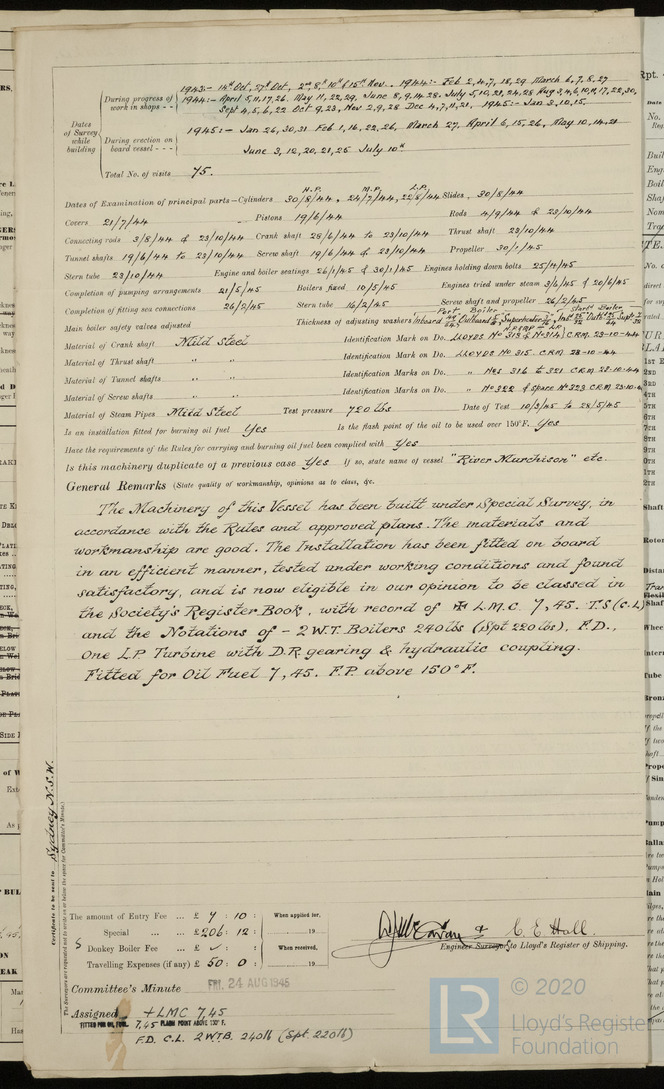 1943:- 14th Oct, 27th Oct, 2nd, 8th, 10th & 15th Nov. 1944:- Feb 2,4,7,18,29 March 6,7,8,27
During progress of work in shops - - 1944:- April 5,11,17,26. May 11,22,29, June 8,9,14,28. July 5,10,21,24,28 Aug 3,4,6,10,11,17,22,30,
Sept 4,5,6,22 Oct 9,23, Nov 2,9,28 Dec 4,7,11,21. 1945:- Jan 3,10,15.
Dates of Survey while building
During erection on board vessel - - - 1945:- Jan 26,30,31 Feb 1,16,22,26, March 27, April 6,15,26, May 10,14,21
June 3,12,20,21,25 July 10th
Total No. of visits 75.
Dates of Examination of principal parts—Cylinders H.P. 30/8/44, M.P. 24/7/44, L.P. 22/8/44 Slides 30/8/44
Covers 21/7/44 Pistons 19/6/44 Rods 4/9/44 & 23/10/44
Connecting rods 3/8/44 & 23/10/44 Crank shaft 28/6/44 to 23/10/44 Thrust shaft 23/10/44
Tunnel shafts 19/6/44 to 23/10/44 Screw shaft 19/6/44 & 23/10/44 Propeller 30/1/45
Stern tube 23/10/44 Engine and boiler seatings 26/1/45 & 30/1/45 Engines holding down bolts 25/4/45
Completion of pumping arrangements 21/5/45 Boilers fixed 10/5/45 Engines tried under steam 3/6/45 & 20/6/45
Completion of fitting sea connections 26/2/45 Stern tube 16/2/45 Screw shaft and propeller 26/2/45
Main boiler safety valves adjusted Thickness of adjusting washers Port Boiler Inboard Outboard Superheater Start Boiler
Material of Crank shaft Mild Steel Identification Mark on Do. LLOYDS No 313 & No 314 C.R.M. 23-10-44
Material of Thrust shaft " " Identification Mark on Do. LLOYDS No 315 C.R.M 23-10-44
Material of Tunnel shafts " " Identification Marks on Do. " Nos 316 to 321 C.R.M. 23-10-44
Material of Screw shafts " " Identification Marks on Do. " No 322 & Space No 323 C.R.M. 23-10-4
Material of Steam Pipes Mild Steel Test pressure 720 lbs Date of Test 10/3/45 to 24/5/45
Is an installation fitted for burning oil fuel Yes Is the flash point of the oil to be used over 150°F. Yes
Have the requirements of the Rules for carrying and burning oil fuel been complied with Yes
Is this machinery duplicate of a previous case Yes If so, state name of vessel "River Murchison" etc.
General Remarks (State quality of workmanship, opinions as to class, &c.
The Machinery of this Vessel has been built under Special Survey, in
accordance with the Rules and approved plans. The materials and
workmanship are good. The Installation has been fitted on board
in an efficient manner, tested under working conditions and found
satisfactory, and is now eligible in our opinion to be classed in
the Society's Register Book, with record of ✠ L.M.C. 7,45. T.S (C.L)
and the Notations of - 2 W.T. Boilers 240 lbs (Spt 220 lbs), F.D.,
One L.P Turbine with D.R gearing & hydraulic coupling.
Fitted for Oil Fuel 7,45. F.P. above 150°F.
Certificate to be sent to Sydney N.S.W.
(The Surveyors are requested not to write on or below the space for Committee's Minute.)
The amount of Entry Fee ... £ 7 : 10 : When applied for,
Special ... £ 206 : 12 : 19
Donkey Boiler Fee ... £ ✓ : : When received,
Travelling Expenses (if any) £ 50 : 0 : 19
& C. E. Hall.
Engineer Surveyors to Lloyd's Register of Shipping.
Committee's Minute FRI. 24 AUG 1945
Assigned + LMC 7,45
FITTED FOR OIL FUEL 7,45 FLASH POINT ABOVE 150° F.
F.D. C.L. 2 W.T.B. 240 lb (Spt. 220 lb)
LR
© 2020
Lloyd's Register
Foundation